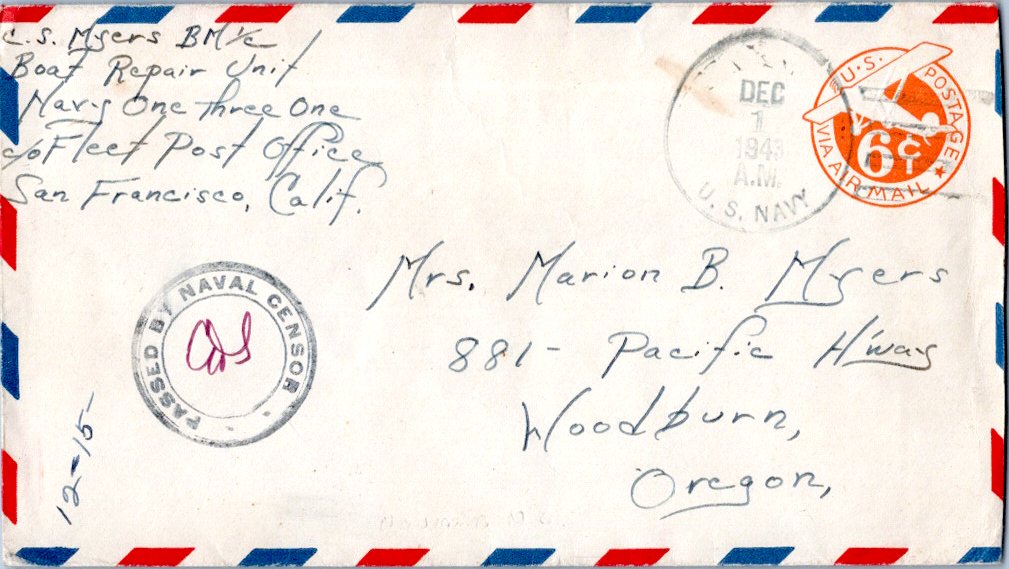 C.S. Myers BM1/c
Boat Repair Unit
Navy One three One
c/o Fleet Post Office
San Francisco, Calif.
DEC
1
1943
A.M.
U.S. NAVY
U.S. POSTAGE
VIA AIR MAIL
6¢
PASSED BY NAVAL CENSOR
Mrs. Marion B. Myers
881- Pacific H'way
Woodburn,
Oregon,
12-15-